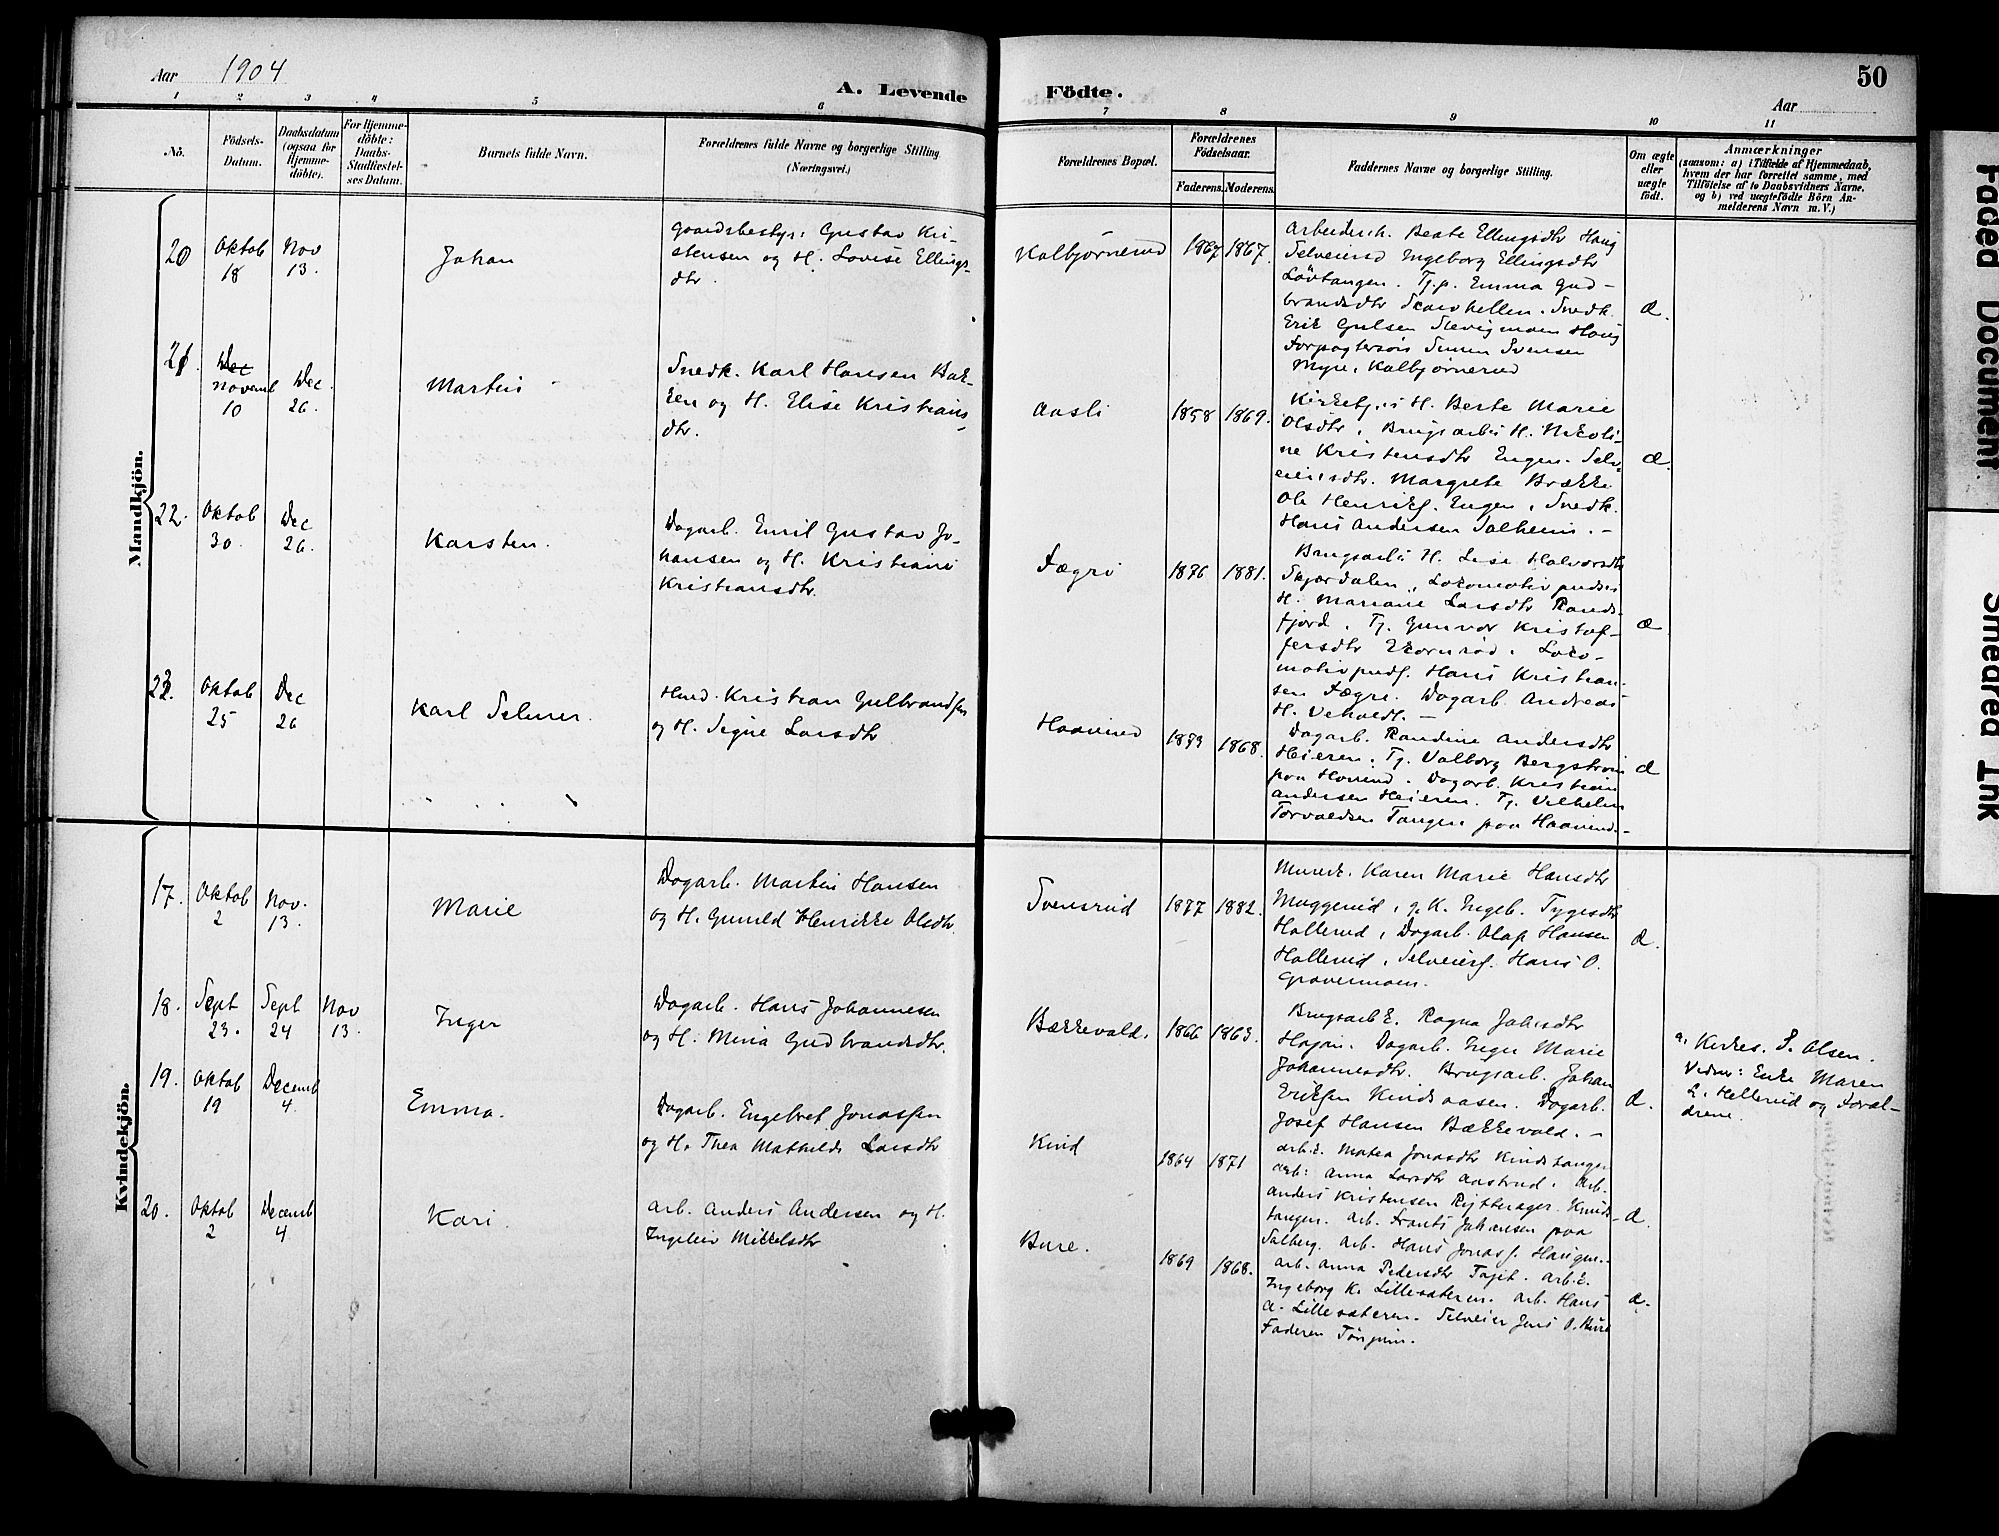 Aar 1904
A. Levende
Födte.
50
Aar
1 2 3 4 5 6 7 8 9 10 11
No.
Födsels-
Datum.
Daabsdatum
(ogsaa for
Hjemme-
döbte).
For Hjemme-
döbte:
Daabs-
Stadfæstel-
ses Datum.
Barnets fulde Navn.
Forældrenes fulde Navne og borgerlige Stilling
(Næringsvei.)
Forældrenes Bopæl.
Forældrenes
Födselsaar.
Faderens. Moderens.
Faddernes Navne og borgerlige Stilling.
Om ægte
eller
uægte
födt.
Anmærkninger
(saasom: a) i Tilfælde af Hjemmedaab,
hvem der har forrettet samme, med
Tilföielse af to Daabsvidners Navne,
og b) ved uægtefödte Börn An-
melderens Navn m. V.)
Mandkjön.
20
Oktob
18
Nov
13.
Johan
Gaardsbestyr: Gustav Kri-
stensen og H. Lovise Ellings-
dtr.
Kolbjørnerud
1867
1867.
Arbeidersk. Beate Ellingsdtr Haug
Selveiersd Ingeborg Ellingsdtr
Lövtangen. Tj.p. Emma Gud-
brandsdtr Skarvhellen. Snedk.
Erik Gulsen Haug
Simen Svensen
Myre, Kolbjørnerud
æ.
21.
Dec
Novemb
10
Dec.
26.
Martin
Snedk. Karl Hansen Bak-
ken og H. Elise Kristians
dtr.
Aasli
1858
1869.
H. Berte Marie
Olsdtr, Brugsarbs H. Nikoli-
ne Kristensdtr Engen. Selv-
eiersdtr. Margrete Brække
Ole Henriks. Engen, Snedk.
Hans Andersen Solheim. -
æ.
22.
Oktob
30.
Dec
26.
Karsten.
Dagarb. Emil Gustav Jo-
hansen og H. Kristiane
Kristiansdtr.
Fægri
1876
1881.
Brugsarb's H. Lise Halvorsdtr
Skjærdalen, Lokomotivpudsers
H. Mariane Larsdtr Rands-
fjord. Tj. Gunvor Kristof-
fersdtr Ekornrød. Loko-
motivpuds. Hans Kristian-
sen Fægri. Dagarb. Andreas
H. -
æ
23.
Oktob
25
Dec
26
Karl Selmer.
Hmd. Kristian Gulbrandsen
og H. Signe Larsdtr
Haaverud
1873
1868.
Dagarb. Randine Andersdtr
Heieren. Tj. Valborg Bergstrøm
paa Haverud. Dagarb. Kristian
Andersen Heieren. Tj. Vilhelm
Torvaldsen Tangen paa Haaverud.-
æ
Kvindekjön.
17.
Oktob
2
Nov.
13.
Marie
Dagarb. Martin Hansen
og H. Gunild Henrikke Olsdtr.
Svensrud
1877
1882.
Murerk. Karen Marie Hansdtr
Muggerud, g.K. Ingeb. Tygesdtr
Hallerud, Dagarb. Olaf Hansen
Hallerud, Selveiers. Hans O.
Gravermoen.
æ.
18.
Sept
23.
Sept
24
Nov
13.
Inger
Dagarb. Hans Johannesen
og H. Mina Gudbrandsdtr.
Bækkevold.
1866
1863.
Brugsarb.k. Ragna Johsdtr
Hagen. Dagarb. Inger Marie
Johannesdtr. Brugsarb. Johan
Eriksen Kindsaasen. Dagarb.
Josef Hansen Bækkevold. -
æ.
a. Kirkes. S. Olsen.
Vidner: Enke Maren
L. Hellerud og Foræl-
drene.
19.
Oktob
19
Decemb
4.
Emma.
Dagarb. Engebret Jonassen
og H. Thea Mathilde Larsdtr
Kind
1864
1871
Arb.k. Matea Jonasdtr Kindstangen
Arb: Anna Larsdtr Aastrud. Arb.
Anders Kristensen Rytterager. Kinds-
tangen. Arb. Frants Johansen paa
Solberg. Arb. Hans Jonass. Haugen.
æ.
20.
Oktob
2
Decemb
4
Kari.
Arb. Anders Andersen og H.
Ingeleiv Mikkelsdtr
Bure.
1869
1868.
Arb. Anna Pedersdtr Arb.k.
Ingeborg K. Lillesæteren. Arb. Hans
A. Lillesæteren. Selveier Jens O. Bure
Faderen
æ.
Faded Document.
Smeared Ink